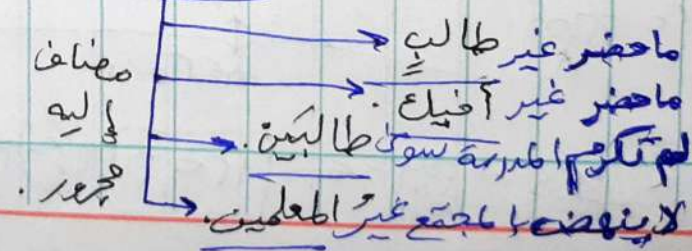 ما حضر غير طالبٍ
ما حضر غير أخيك.
لم تكرم المدرسة سوى طالبَين.
لا ينهض بالمجتمع غيرُ المعلمين.
مضاف
إليه
مجرور.